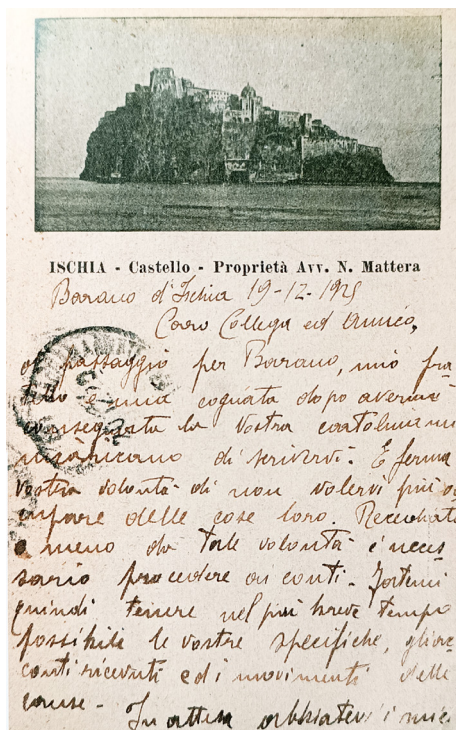 ISCHIA - Castello - Proprietà Avv. N. Mattera
Barano d'Ischia 19-12-1925
Caro Collega ed Amico,
di passaggio per Barano, mio fra
tello e mia cognata dopo avermi
consegnata la Vostra cartolina mi
incaricano di scrivervi. È ferma
vostra volontà di non volervi più oc
cupare delle cose loro.
a meno da tale volontà è neces
sario procedere ai conti. Fatemi
quindi tenere nel più breve tempo
possibile le vostre specifiche, gli ac
conti ricevuti ed i movimenti delle
cause - In attesa abbiatevi i miei